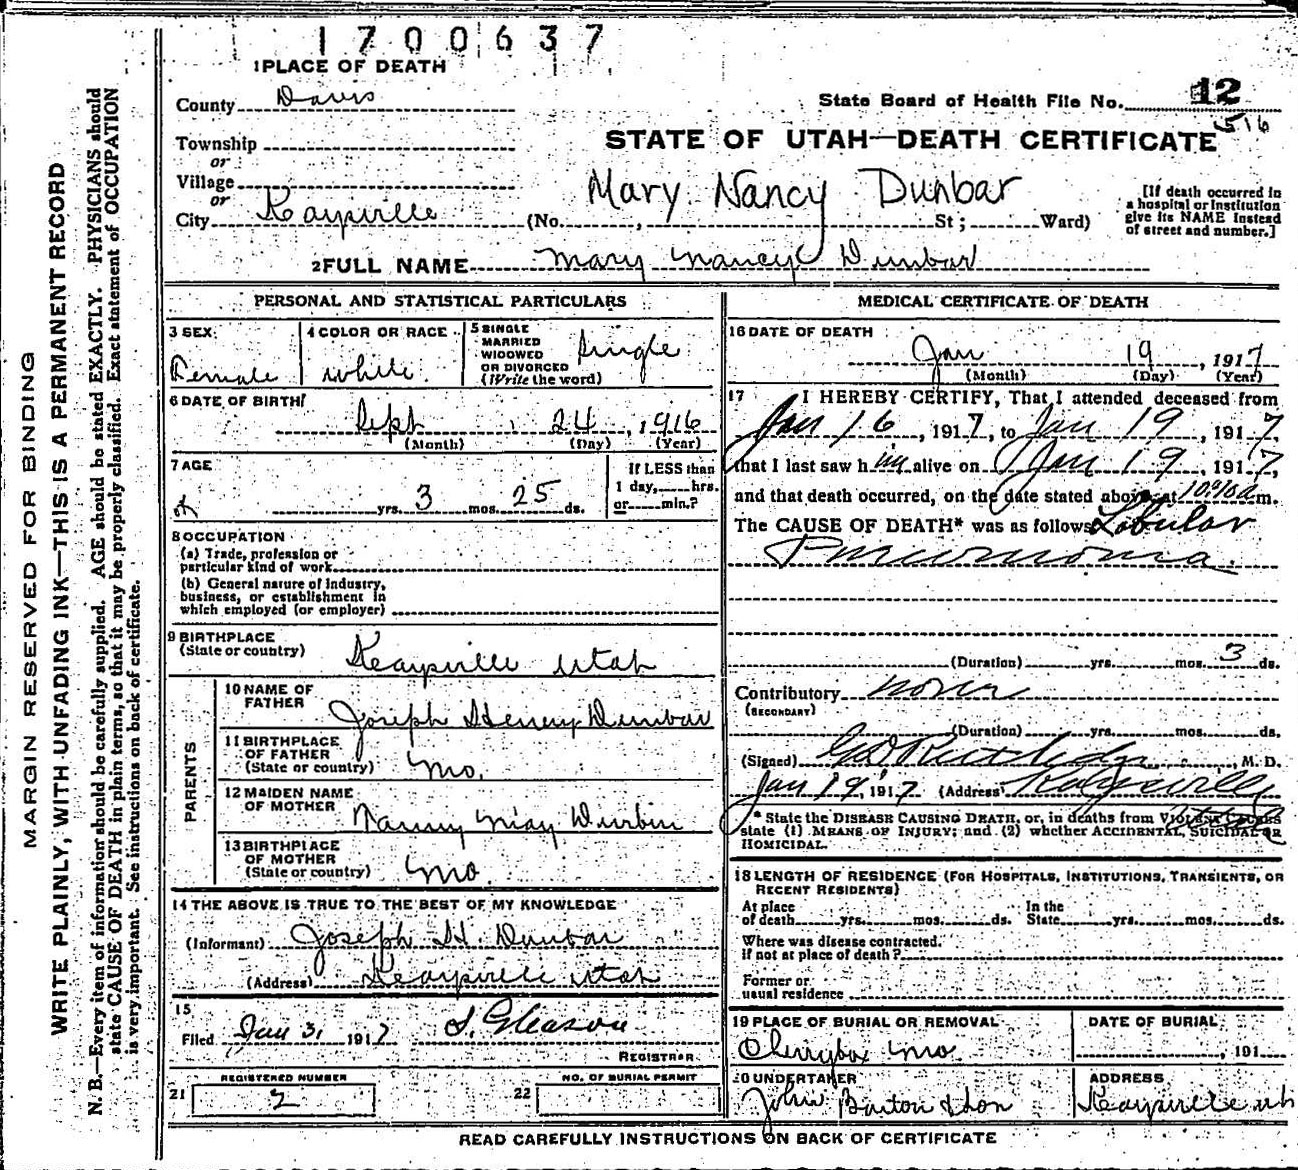 1700637
1 PLACE OF DEATH
County Davis
State Board of Health File No. 12
516
Township
or
Village
or
City Kaysville
STATE OF UTAH—DEATH CERTIFICATE
Mary Nancy Dunbar
(No. , St; Ward)
[If death occurred in
a hospital or institution
give its NAME instead
of street and number.]
2 FULL NAME Mary Nancy Dunbar
PERSONAL AND STATISTICAL PARTICULARS
3 SEX
Female
4 COLOR OR RACE
white.
5 SINGLE
MARRIED
WIDOWED
OR DIVORCED
(Write the word)
Single
6 DATE OF BIRTH
Sept 24, 1916
(Month) (Day) (Year)
7 AGE
yrs. 3 mos. 25 ds.
If LESS than
1 day, hrs.
or min.?
8 OCCUPATION
(a) Trade, profession or
particular kind of work
(b) General nature of industry,
business, or establishment in
which employed (or employer)
9 BIRTHPLACE
(State or country)
Kaysville Utah
PARENTS
10 NAME OF
FATHER
Joseph Henry Dunbar
11 BIRTHPLACE
OF FATHER
(State or country)
Mo.
12 MAIDEN NAME
OF MOTHER
Nanny May Durbin
13 BIRTHPLACE
OF MOTHER
(State or country)
Mo.
14 THE ABOVE IS TRUE TO THE BEST OF MY KNOWLEDGE
(Informant) Joseph H. Dunbar
(Address) Kaysville Utah
15
Filed Jan 31 1917 S. Gleason
REGISTRAR
REGISTERED NUMBER
21 2
NO. OF BURIAL PERMIT
22
MEDICAL CERTIFICATE OF DEATH
16 DATE OF DEATH
Jan 19, 1917
(Month) (Day) (Year)
17 I HEREBY CERTIFY, That I attended deceased from
Jan 16, 1917, to Jan 19, 1917,
that I last saw him alive on Jan 19, 1917,
and that death occurred, on the date stated above, at m.
The CAUSE OF DEATH* was as follows: Lobular
Pneumonia
(Duration) yrs. mos. 3 ds.
Contributory none
(SECONDARY)
(Duration) yrs. mos. ds.
(Signed) Rutledge, M. D.
Jan 19, 1917 (Address) Kaysville
* State the DISEASE CAUSING DEATH, or, in deaths from VIOLENT CAUSES
state (1) MEANS OF INJURY; and (2) whether ACCIDENTAL, SUICIDAL OR
HOMICIDAL.
18 LENGTH OF RESIDENCE (FOR HOSPITALS, INSTITUTIONS, TRANSIENTS, OR
RECENT RESIDENTS)
At place
of death yrs. mos. ds.
In the
State yrs. mos. ds.
Where was disease contracted.
If not at place of death?
Former or
usual residence
19 PLACE OF BURIAL OR REMOVAL
Cherrybox Mo.
DATE OF BURIAL
, 191
20 UNDERTAKER
John Barton & Son
ADDRESS
Kaysville Ut
READ CAREFULLY INSTRUCTIONS ON BACK OF CERTIFICATE
MARGIN RESERVED FOR BINDING
WRITE PLAINLY, WITH UNFADING INK—THIS IS A PERMANENT RECORD
N. B.—Every item of information should be carefully supplied. AGE should be stated EXACTLY. PHYSICIANS should
state CAUSE OF DEATH in plain terms, so that it may be properly classified. Exact statement of OCCUPATION
is very important. See instructions on back of certificate.